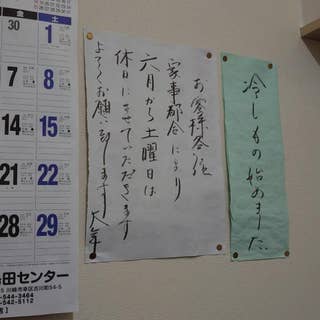 金 土
30 1
7 8
14 15
21 22
28 29
田センター
川崎市幸区古川町54-5
544-3464
542-5112
お客様各位
家事都合により
六月から土曜日は
休日にさせていただきます
よろしくお願い致します
冷しもの始めました